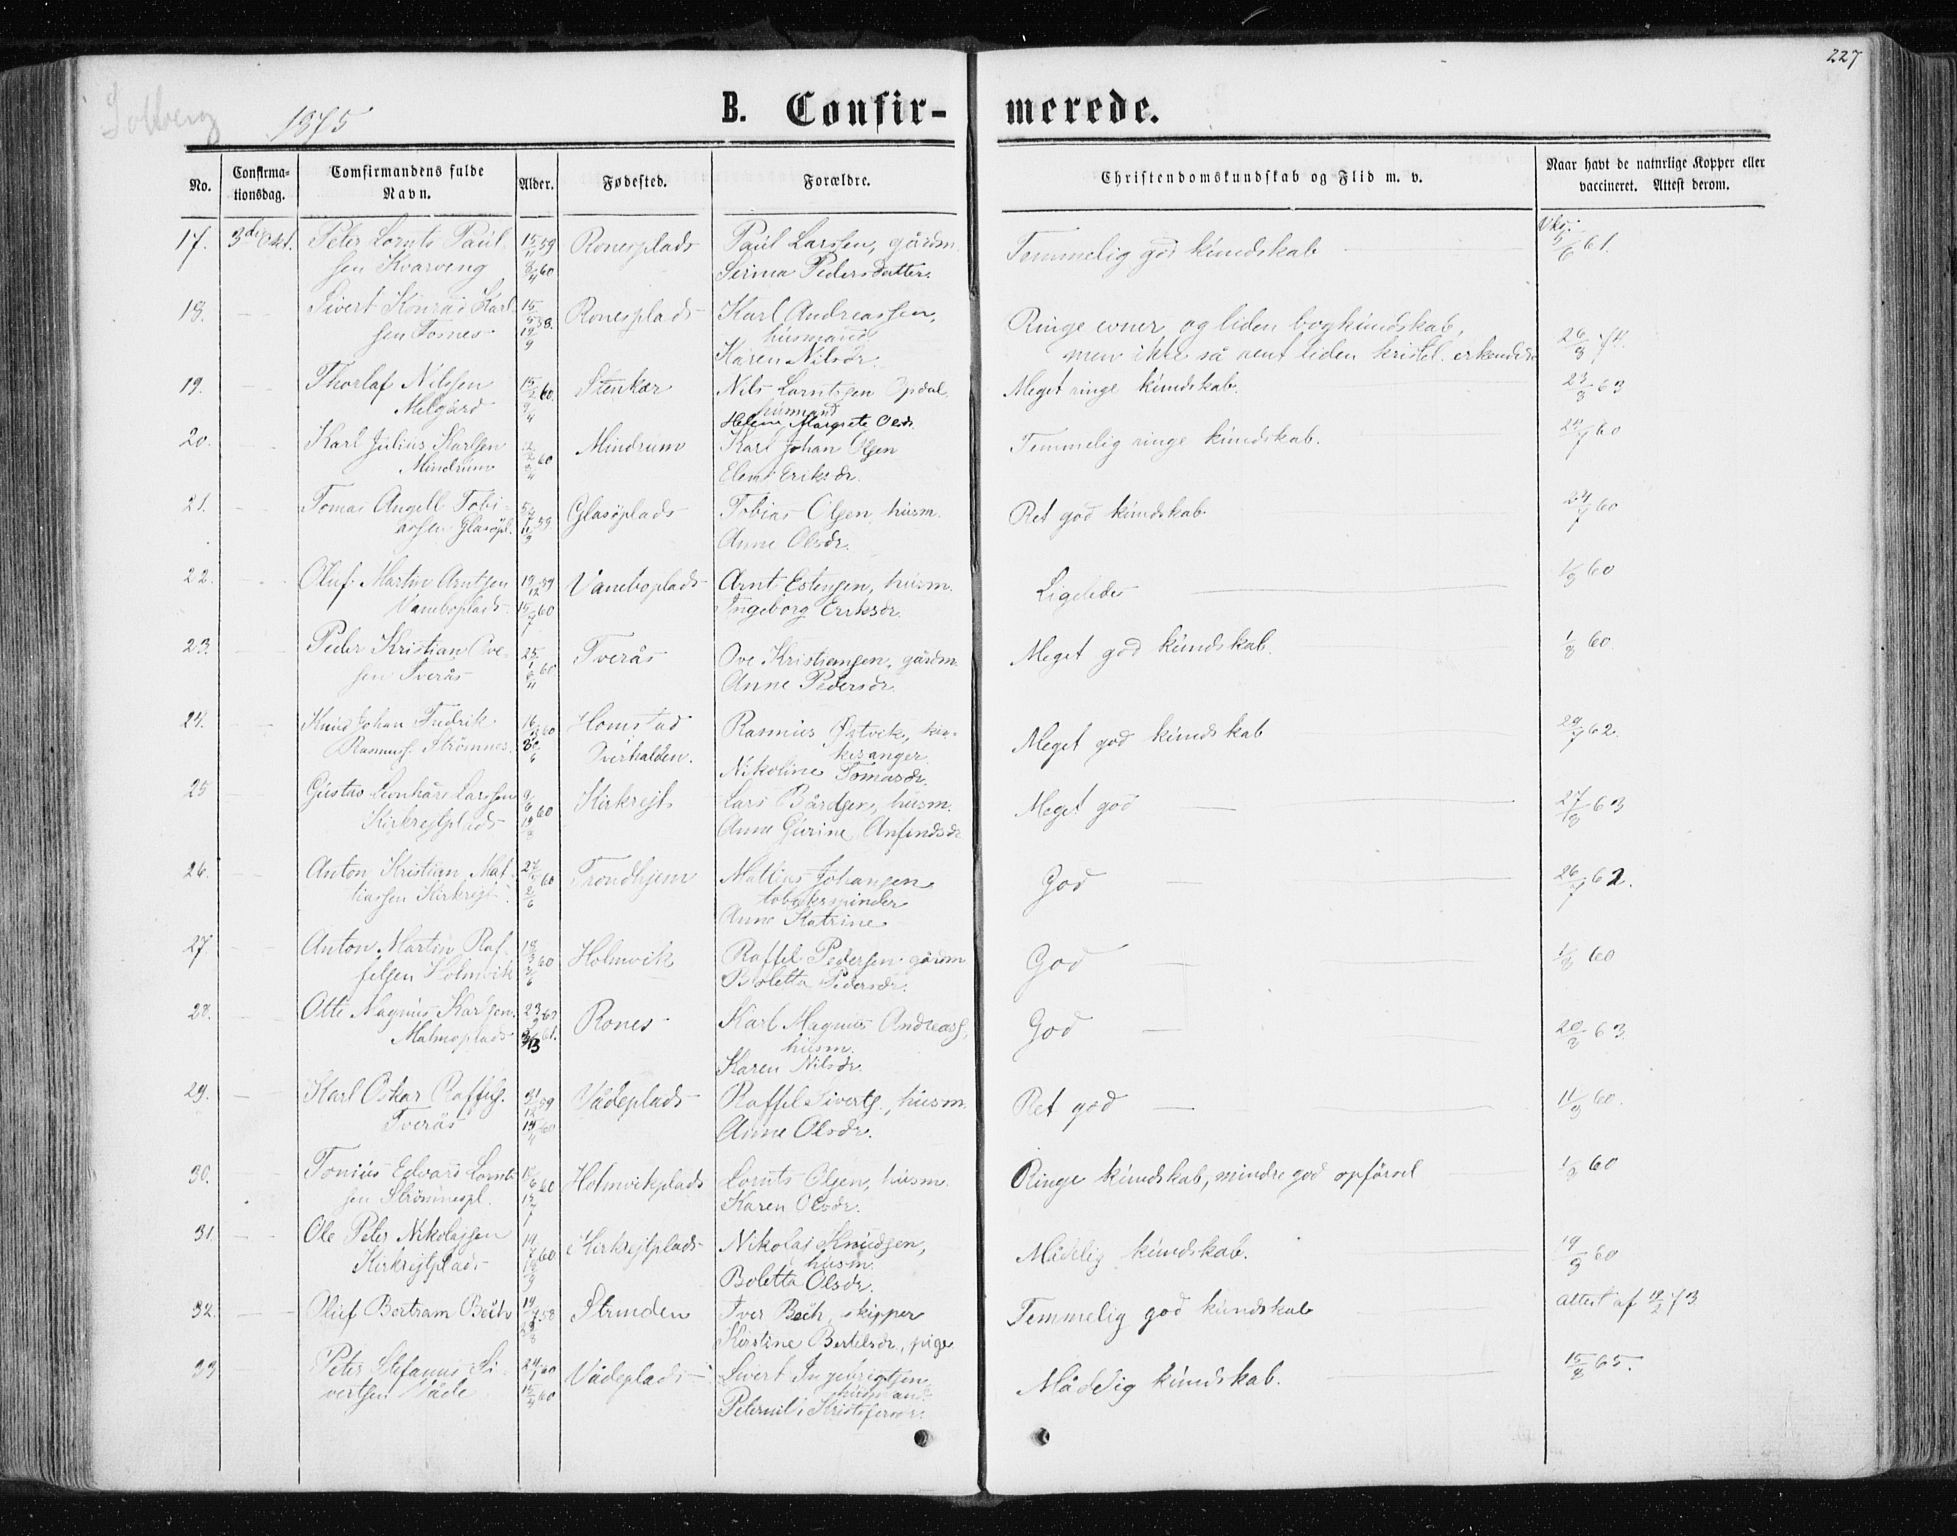 227
Solberg 1875
B. Confir- merede.
No. Confirma- Comfirmandens fulde Alder. Fødested. Forældre. Christendomskundskab og Flid m. v. Naar havt de naturlige Kopper eller
tionsdag. Navn. vaccineret. Attest derom.
17. 3die Okt. Peter Lornts Paul- 15/11 59 Ronesplads Paul Larssen, gårdm. Temmelig god kundskab 5/6 61.
sen Kvarveng 8/4 60 Serina Pedersdatter.
18. Sivert Konrad Karl- 15/5 58. Ronesplads Karl Andreassen, Ringe evner og liden bogkundskab,
sen Fosnes husmand men ikke så rent liden kristel. erkendelse 26/8 74.
Karen Nilsdr.
19. Thorlaf Nilssen 15/2 60. Stenkær Nils Larntsen Opdal Meget ringe kundskab. 23/8 63
Melgård husmand
Helene Margrete Olsdr.
20. Karl Julius Karlsen 60 Mindrum Karl Johan Olsen Temmelig ringe kundskab. 24/7 60
Mindrum Elen Eriksdr.
21. Tomas Angell Tobi- 59 Glasöplads Tobias Olsen, husm. Ret god kundskab 24/7 60
assen Glasöpl. Anne Olsdr.
22. Oluf Martin Arntsen 19/12 59 Vaneboplads Arnt Estensen, husm. Ligeledes 1/8 60
Vaneboplads 15/7 60 Ingeborg Eriksdr.
23. Peder Kristian Ove- 25/1 60 Tverås Ove Kristiansen, gårdm. Meget god kundskab. 1/8 60.
sen Tverås Anne Pedersdr.
24. Knud Johan Fredrik 16/3 60 Homstad Rasmus Østvik, kir- Meget god kundskab 29/7 62.
Rasmuss. Strömnes. Överhalden. kesanger
Nikoline Tomasdr.
25 Gustav Leonhard Larssen 60 Kirkrejt Lars Bårdsen, husm. Meget god — 27/8 63
Kirkrejtplads Anne Gurine Anfindsdr
26. Anton Kristian Mat- 60 Trondhjem Mattias Johansen God — 26/7 62.
tiassen Kirkrejt tobakspinder
Anne Katrine
27. Anton Martin Raf- 18/3 60 Holmvik Raffel Pedersen gårdm God — 1/8 60
felsen Holmvik Boletta Pedersdr.
28. Otto Magnus Karlsen. Rones Karl Magnus Andreass. God — 20/8 63.
Malmoplads husm.
Karen Nilsdr.
29. Karl Oskar Raffels. 21/12 59 Vådeplads Raffel Siverts., husm. Ret god — 11/8 60.
Tverås Anne Olsdr.
30. Tonius Edvard Lornt- 60 Holmvikplads Lornts Olsen, husm. Ringe kundskab, mindre god opförsel 1/8 60
sen Strömnespl. Karen Olsdr.
31. Ole Peter Nikolajsen 60 Kirkrejtplads Nikolaj Knudsen, Mådelig kundskab. 19/8 60
Kirkrejtplads husm.
Boletta Olsdr.
32. Oluf Bertram Beck 58 Strinden Iver Beck, skipper Temmelig god kundskab Attest af 18/2 73.
Kirstine Bertelsdr., pige
33 Peter Stefanus Si- 24/1 60 Vådeplads Sivert Ingebrigtsen Mådelig kundskab. 15/8 65.
vertsen Våde 60 husmand
Peternil Kristofersdr.